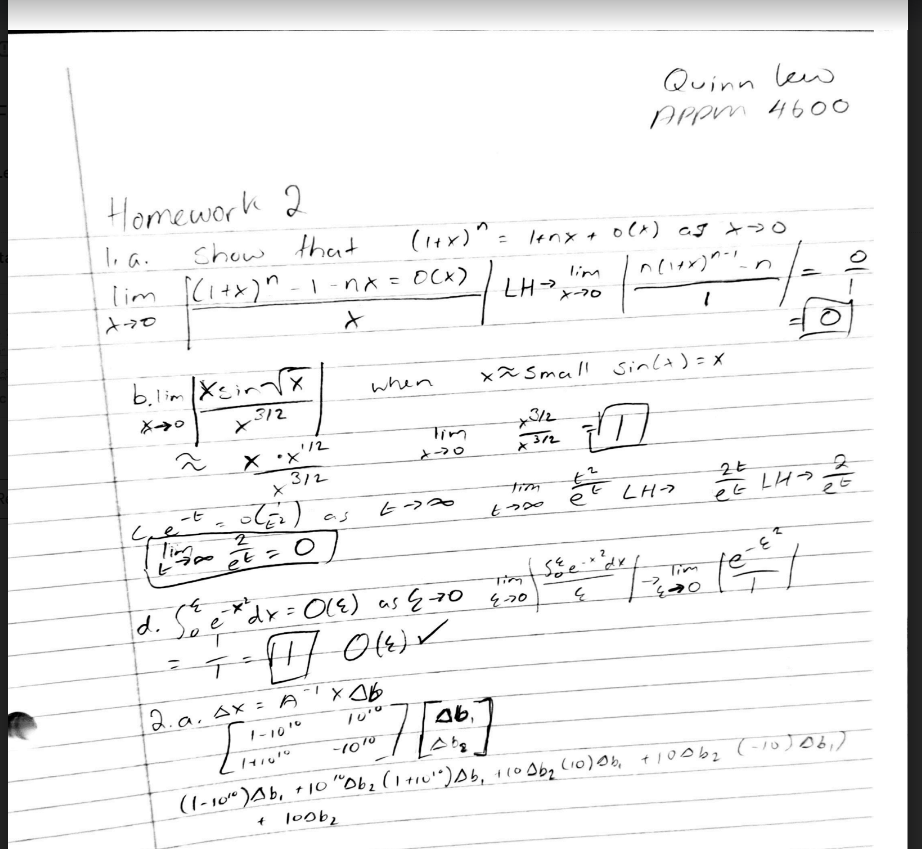 Quinn Lew
APPM 4600
Homework 2
1.a. Show that (1+x)^n = 1+nx + o(x) as x→0
lim x→0 |((1+x)^n - 1 - nx = o(x)) / x| LH→ lim x→0 |(n(1+x)^(n-1) - n) / 1| = 0/1
= 0
b. lim x→0 |x sin √x / x^(3/2)| when x≈small sin(x) = x
≈ x · x^(1/2) / x^(3/2) lim x→0 x^(3/2) / x^(3/2) = 1
c. e^-t = o(1/t^2) as t→∞ lim t→∞ t^2/e^t LH→ 2t/e^t LH→ 2/e^t
lim t→∞ 2/e^t = 0
d. ∫_0^ε e^(-x^2) dx = O(ε) as ε→0 lim ε→0 |∫_0^ε e^(-x^2) dx / ε| → lim ε→0 |e^(-ε^2) / 1|
= 1/1 = 1 O(ε) ✓
2.a. Δx = A^-1 x Δb
[1-10^10 10^10] [Δb_1]
[1+10^10 -10^10] [Δb_2]
(1-10^10)Δb_1 + 10^10 Δb_2 (1+10^10)Δb_1 + 10Δb_2 (10)Δb_1 + 10Δb_2 (-10)Δb_1)
+ 10Δb_2